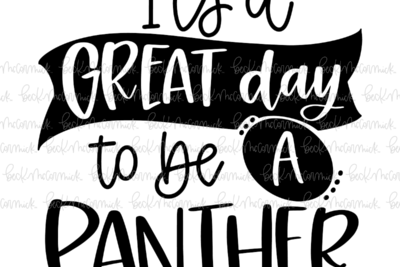 It's a
GREAT day
to be A
PANTHER